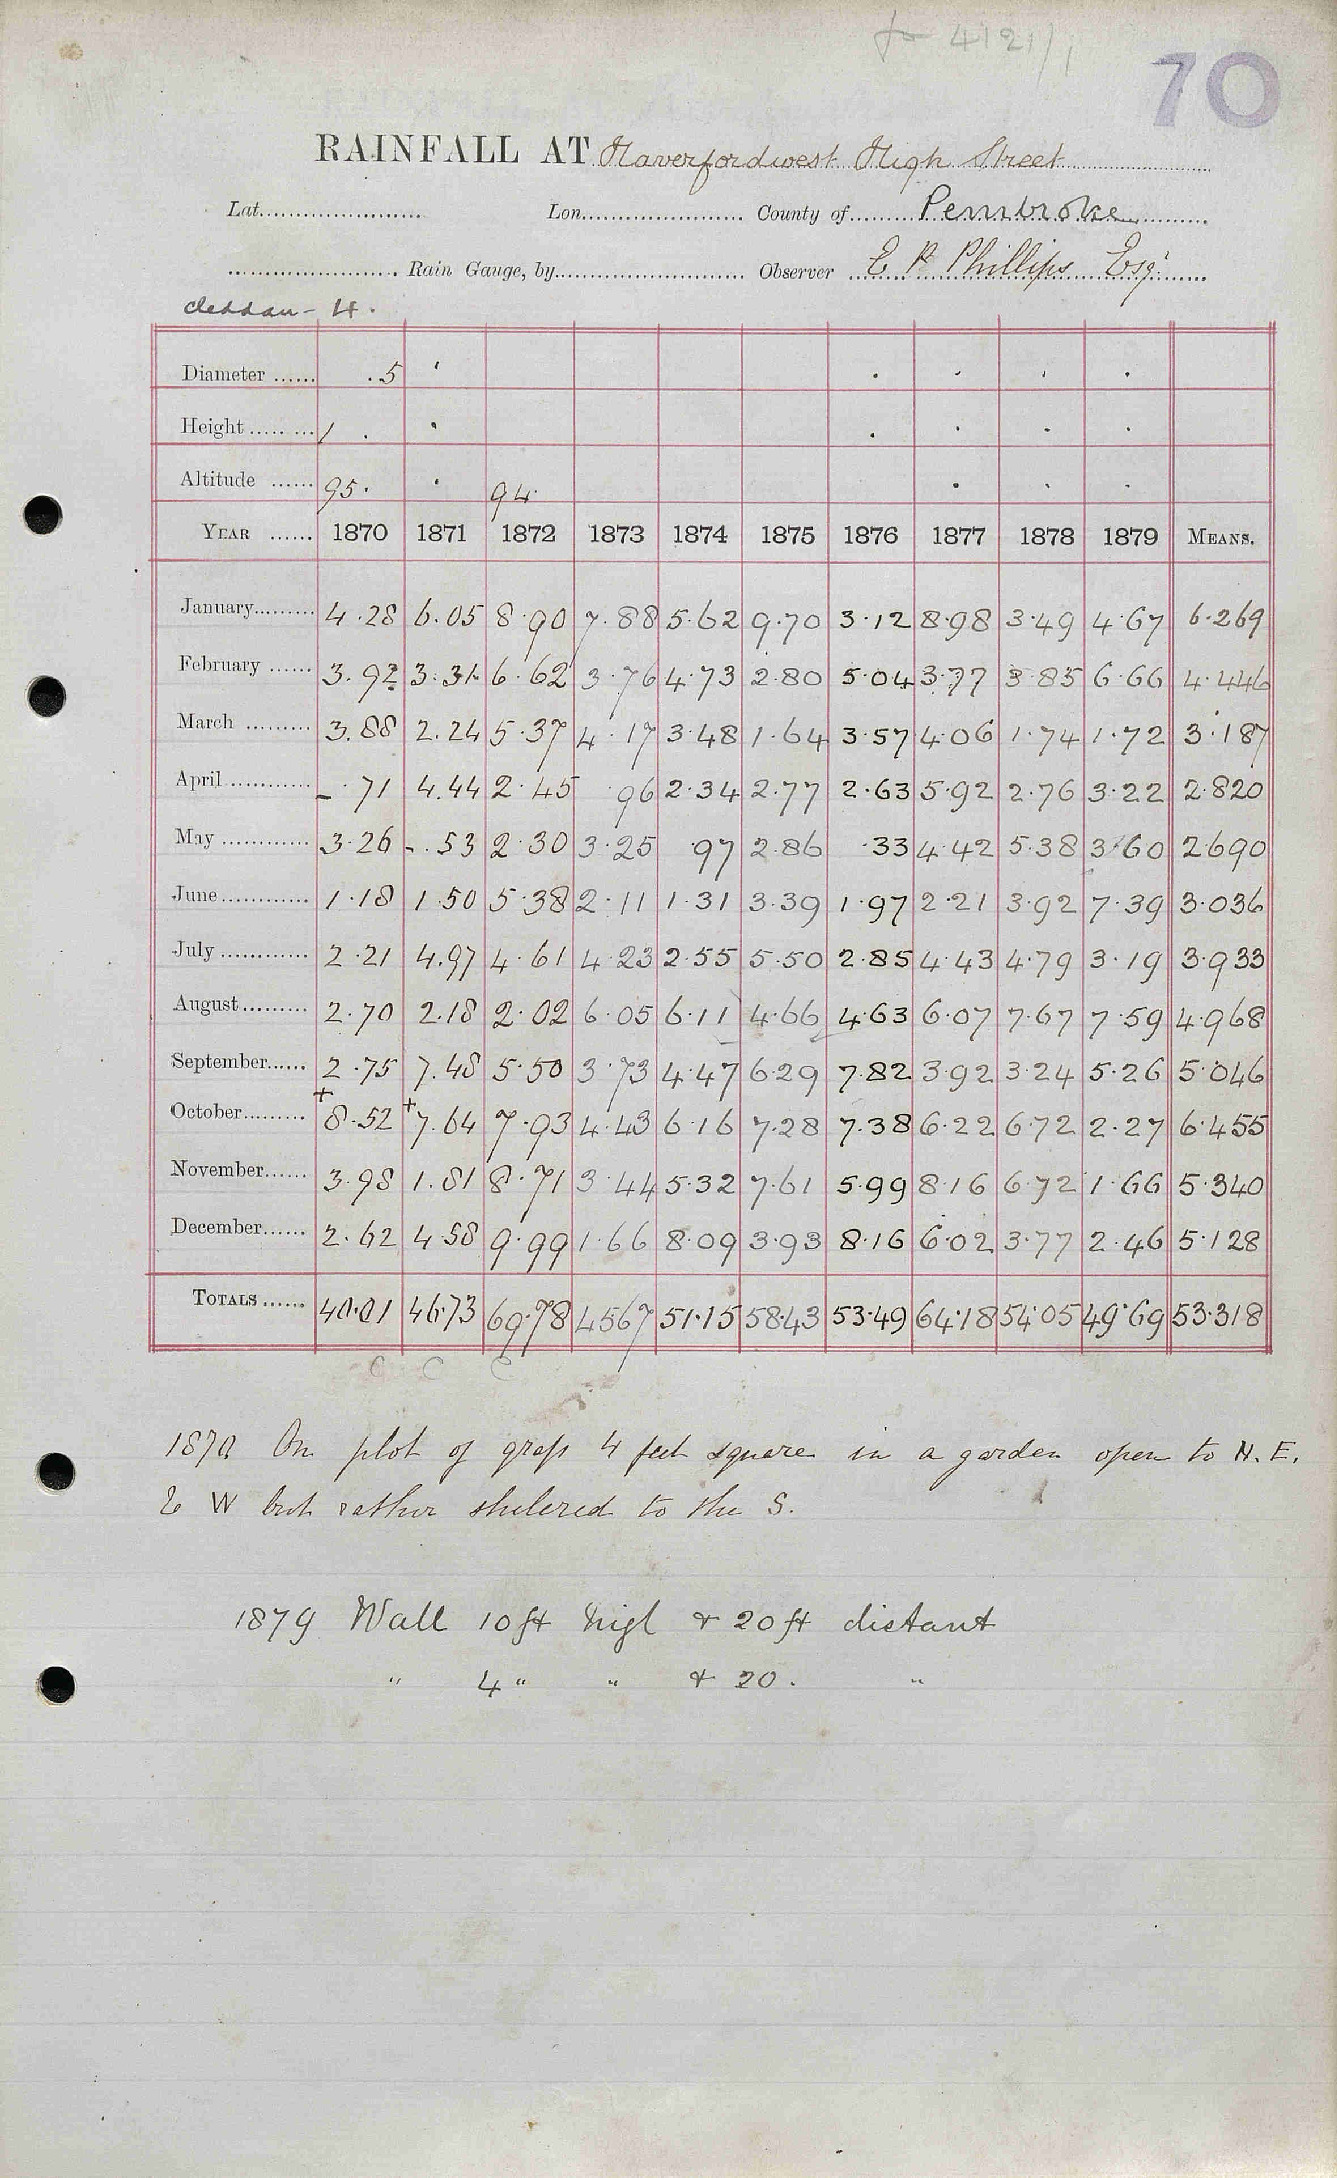 fr 4121/1
70
RAINFALL AT Haverfordwest High Street
Lat. Lon. County of Pembroke
Rain Gauge, by Observer E P Phillips Esqr
Cleddau - 4.
Diameter ...... .5
Height ...... 1 .
Altitude ...... 95. 94.
YEAR ...... 1870 1871 1872 1873 1874 1875 1876 1877 1878 1879 MEANS.
January 4.28 6.05 8.90 7.88 5.62 9.70 3.12 8.98 3.49 4.67 6.269
February 3.92 3.31 6.62 3.76 4.73 2.80 5.04 3.77 3.85 6.66 4.446
March 3.88 2.24 5.37 4.17 3.48 1.64 3.57 4.06 1.74 1.72 3.187
April - .71 4.44 2.45 .96 2.34 2.77 2.63 5.92 2.76 3.22 2.820
May 3.26 - .53 2.30 3.25 97 2.86 .33 4.42 5.38 3.60 2690
June 1.18 1.50 5.38 2.11 1.31 3.39 1.97 2.21 3.92 7.39 3.036
July 2.21 4.97 4.61 4.23 2.55 5.50 2.85 4.43 4.79 3.19 3.933
August 2.70 2.18 2.02 6.05 6.11 4.66 4.63 6.07 7.67 7.59 4.968
September 2.75 7.48 5.50 3.73 4.47 6.29 7.82 3.92 3.24 5.26 5.046
October +8.52 +7.64 7.93 4.43 6.16 7.28 7.38 6.22 6.72 2.27 6.455
November 3.98 1.81 8.71 3.44 5.32 7.61 5.99 8.16 6.72 1.66 5.340
December 2.62 4.58 9.99 1.66 8.09 3.93 8.16 6.02 3.77 2.46 5.128
TOTALS 40.01 46.73 69.78 45.67 51.15 58.43 53.49 64.18 54.05 49.69 53.318
C C C
1870 On plot of grass 4 feet square in a garden open to N. E.
& W but rather sheltered to the S.
1879 Wall 10 ft high & 20 ft distant
" 4 " " & 20 . "